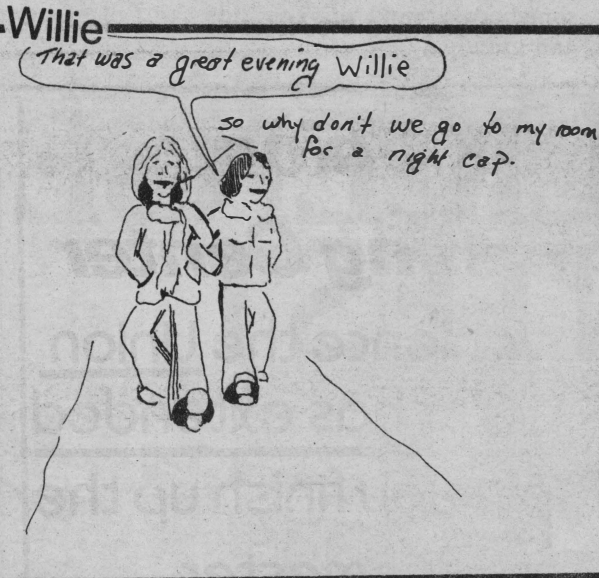 Willie
That was a great evening Willie
so why don't we go to my room
for a night cap.